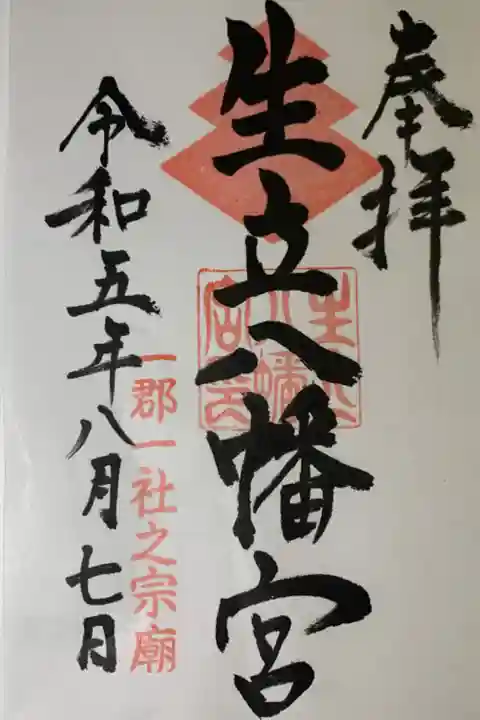 奉拝
生立八幡宮
生立八幡宮
一郡一社之宗廟
令和五年八月七日